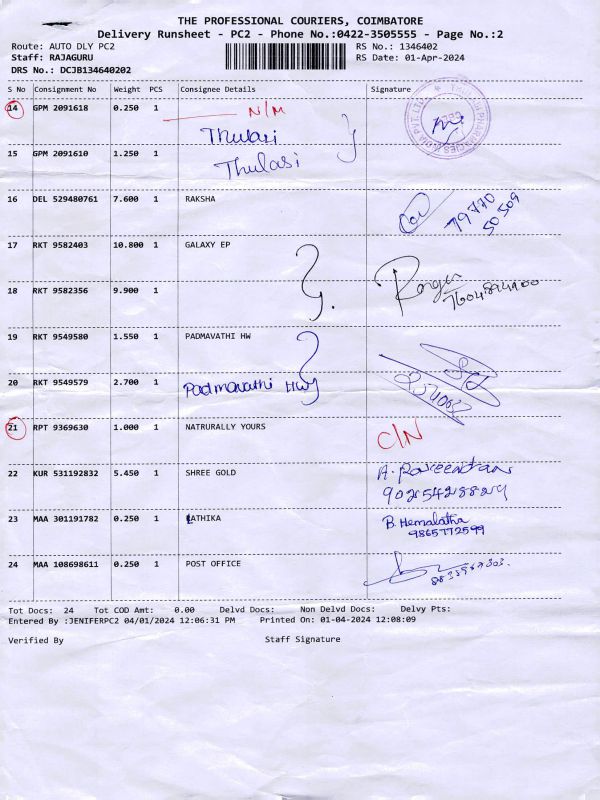 THE PROFESSIONAL COURIERS, COIMBATORE
Delivery Runsheet - PC2 - Phone No.:0422-3505555 - Page No.:2
Route: AUTO DLY PC2 RS No.: 1346402
Staff: RAJAGURU RS Date: 01-Apr-2024
DRS No.: DCJB134640202
S No Consignment No Weight PCS Consignee Details Signature
14 GPM 2091618 0.250 1 N/M
Thulasi
15 GPM 2091610 1.250 1 Thulasi
16 DEL 529480761 7.600 1 RAKSHA 79770
50509
17 RKT 9582403 10.800 1 GALAXY EP
18 RKT 9582356 9.900 1
19 RKT 9549580 1.550 1 PADMAVATHI HW
20 RKT 9549579 2.700 1 Padmavathi HW
21 RPT 9369630 1.000 1 NATRURALLY YOURS C/N
22 KUR 531192832 5.450 1 SHREE GOLD A. Raveendran
9025428829
23 MAA 301191782 0.250 1 LATHIKA B. Hemalatha
9865772599
24 MAA 108698611 0.250 1 POST OFFICE
Tot Docs: 24 Tot COD Amt: 0.00 Delvd Docs: Non Delvd Docs: Delvy Pts:
Entered By :JENIFERPC2 04/01/2024 12:06:31 PM Printed On: 01-04-2024 12:08:09
Verified By Staff Signature